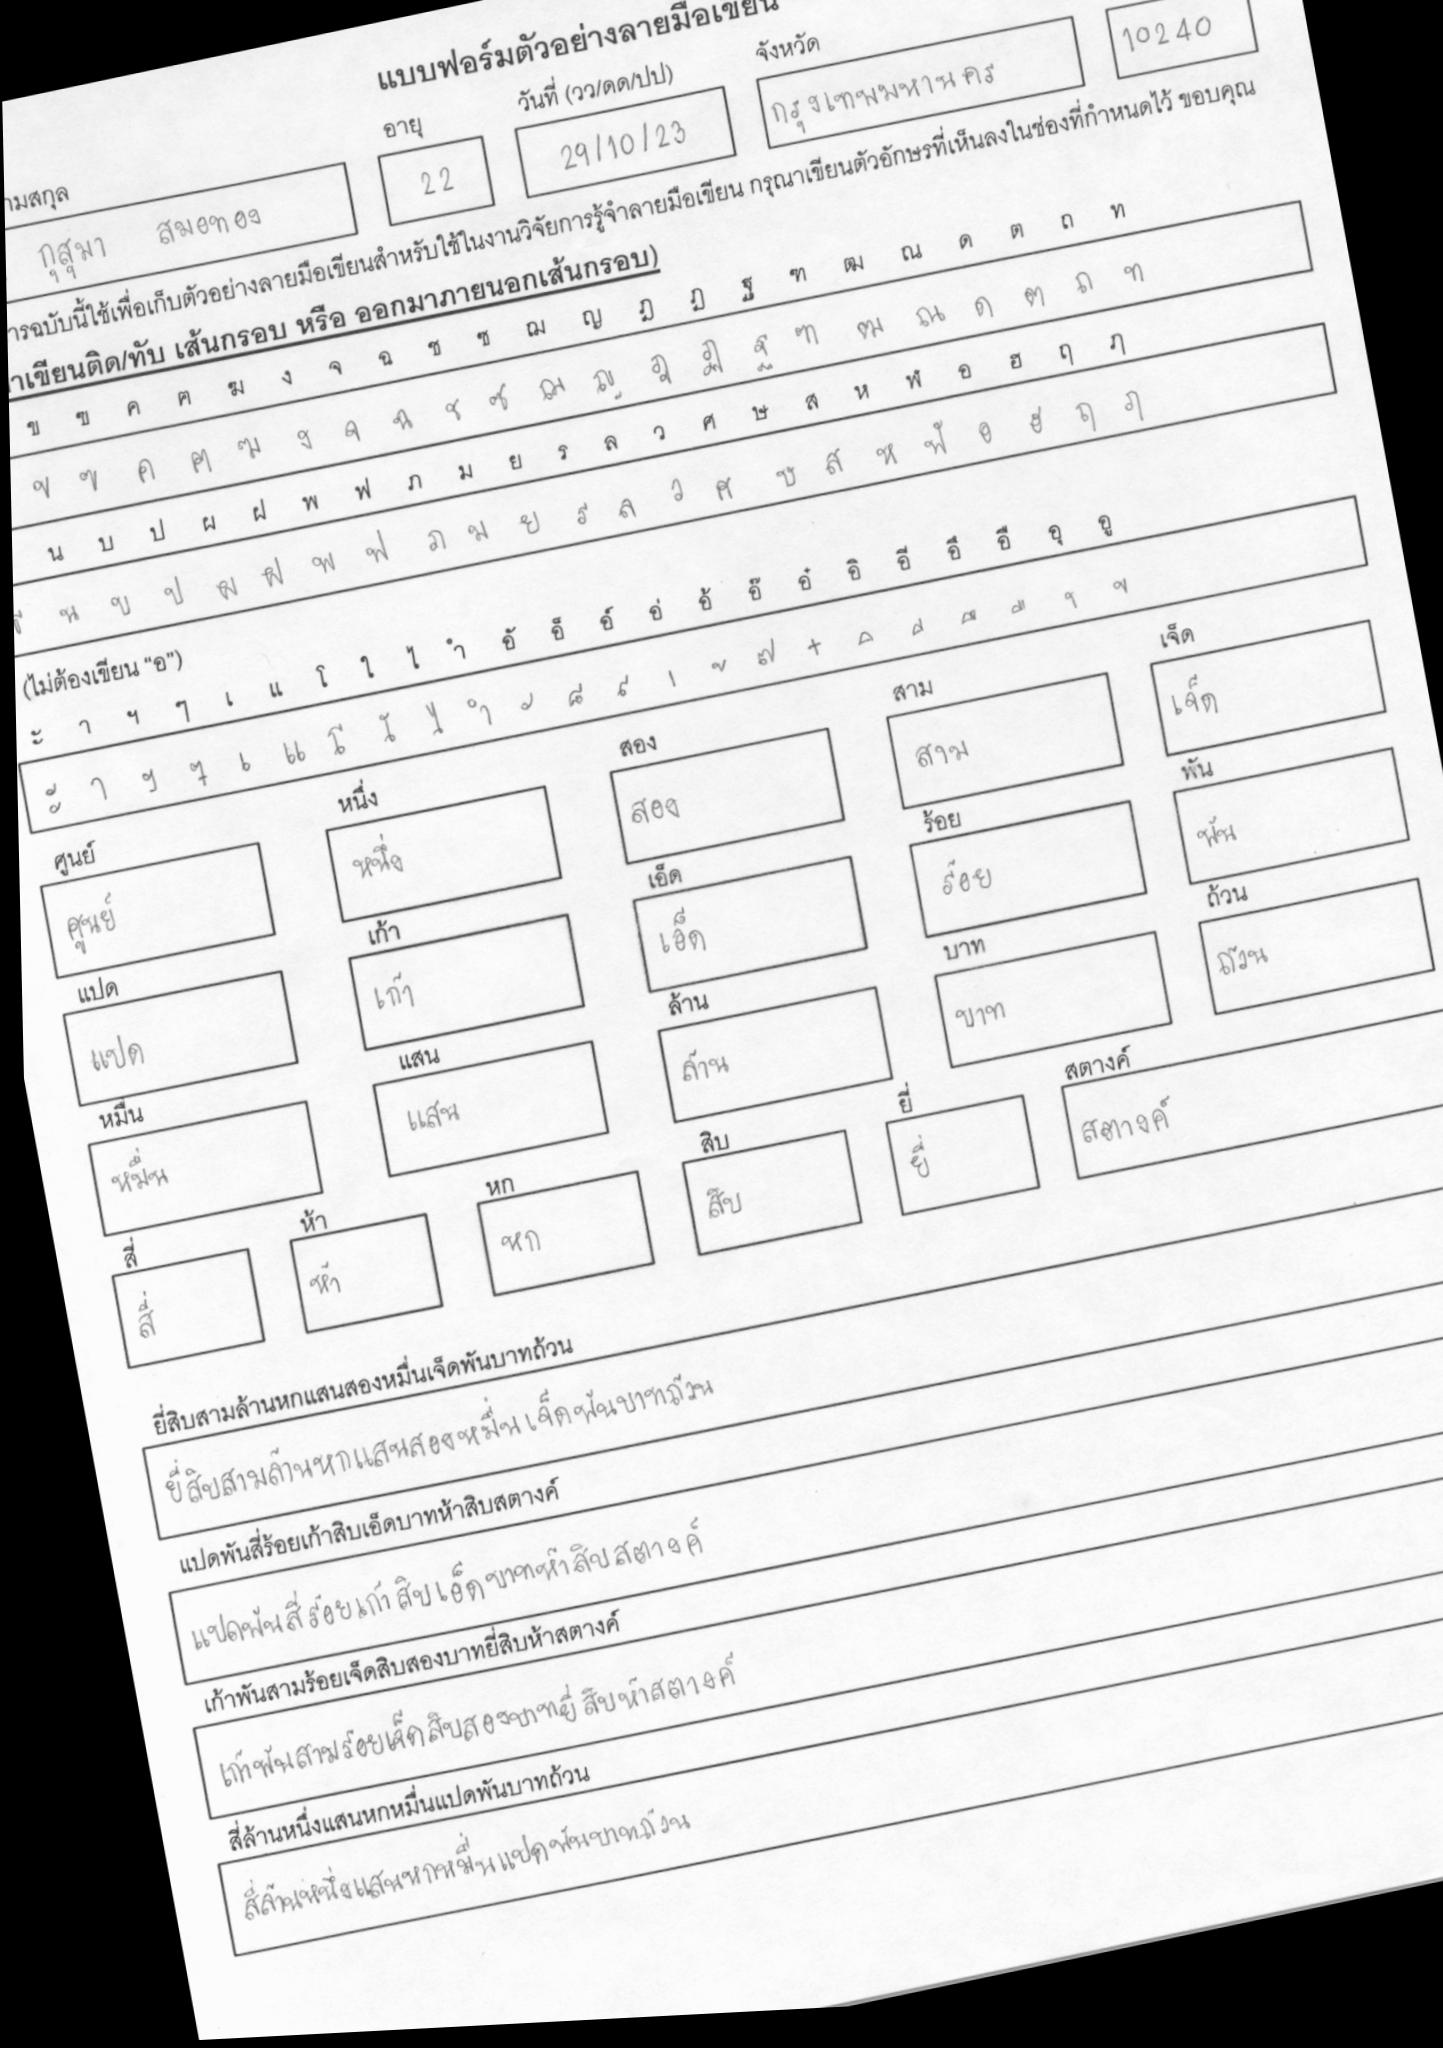 แบบฟอร์มตัวอย่างลายมือเขียน
อายุ วันที่ (วว/ดด/ปป) จังหวัด
กุสุมา สมอทอง 22 29/10/23 กรุงเทพมหานคร 10240
เขียนตัวอย่างลายมือเขียนสำหรับใช้ในงานวิจัยการรู้จำลายมือเขียน กรุณาเขียนตัวอักษรที่เห็นลงในช่องที่กำหนดไว้ ขอบคุณ
เขียนติด/ทับ เส้นกรอบ หรือ ออกมาภายนอกเส้นกรอบ)
ข ฃ ค ฅ ฆ ง จ ฉ ช ซ ฌ ญ ฎ ฏ ฐ ฑ ฒ ณ ด ต ถ ท
ข ฃ ค ฅ ฆ ง จ ฉ ช ซ ฌ ญ ฎ ฏ ฐ ฑ ฒ ณ ด ต ถ ท
น บ ป ผ ฝ พ ฟ ภ ม ย ร ล ว ศ ษ ส ห ฬ อ ฮ ฤ ฦ
ธ น บ ป ผ ฝ พ ฟ ภ ม ย ร ล ว ศ ษ ส ห ฬ อ ฮ ฤ ฦ
(ไม่ต้องเขียน "อ")
ะ า ฯ ๆ เ แ โ ใ ไ ำ อั อ็ อ์ อ่ อ้ อ๊ อ๋ อิ อี อึ อื อุ อู
ะ า ฯ ๆ เ แ โ ใ ไ ำ ั ็ ์ ่ ้ ๊ ๋ ิ ี ึ ื ุ ู
ศูนย์ หนึ่ง สอง สาม เจ็ด
ศูนย์ หนึ่ง สอง สาม เจ็ด
แปด เก้า เอ็ด ร้อย พัน
แปด เก้า เอ็ด ร้อย พัน
หมื่น แสน ล้าน บาท ถ้วน
หมื่น แสน ล้าน บาท ถ้วน
สี่ ห้า หก สิบ ยี่ สตางค์
สี่ ห้า หก สิบ ยี่ สตางค์
ยี่สิบสามล้านหกแสนสองหมื่นเจ็ดพันบาทถ้วน
ยี่สิบสามล้านหกแสนสองหมื่นเจ็ดพันบาทถ้วน
แปดพันสี่ร้อยเก้าสิบเอ็ดบาทห้าสิบสตางค์
แปดพันสี่ร้อยเก้าสิบเอ็ดบาทห้าสิบสตางค์
เก้าพันสามร้อยเจ็ดสิบสองบาทยี่สิบห้าสตางค์
เก้าพันสามร้อยเจ็ดสิบสองบาทยี่สิบห้าสตางค์
สี่ล้านหนึ่งแสนหกหมื่นแปดพันบาทถ้วน
สี่ล้านหนึ่งแสนหกหมื่นแปดพันบาทถ้วน